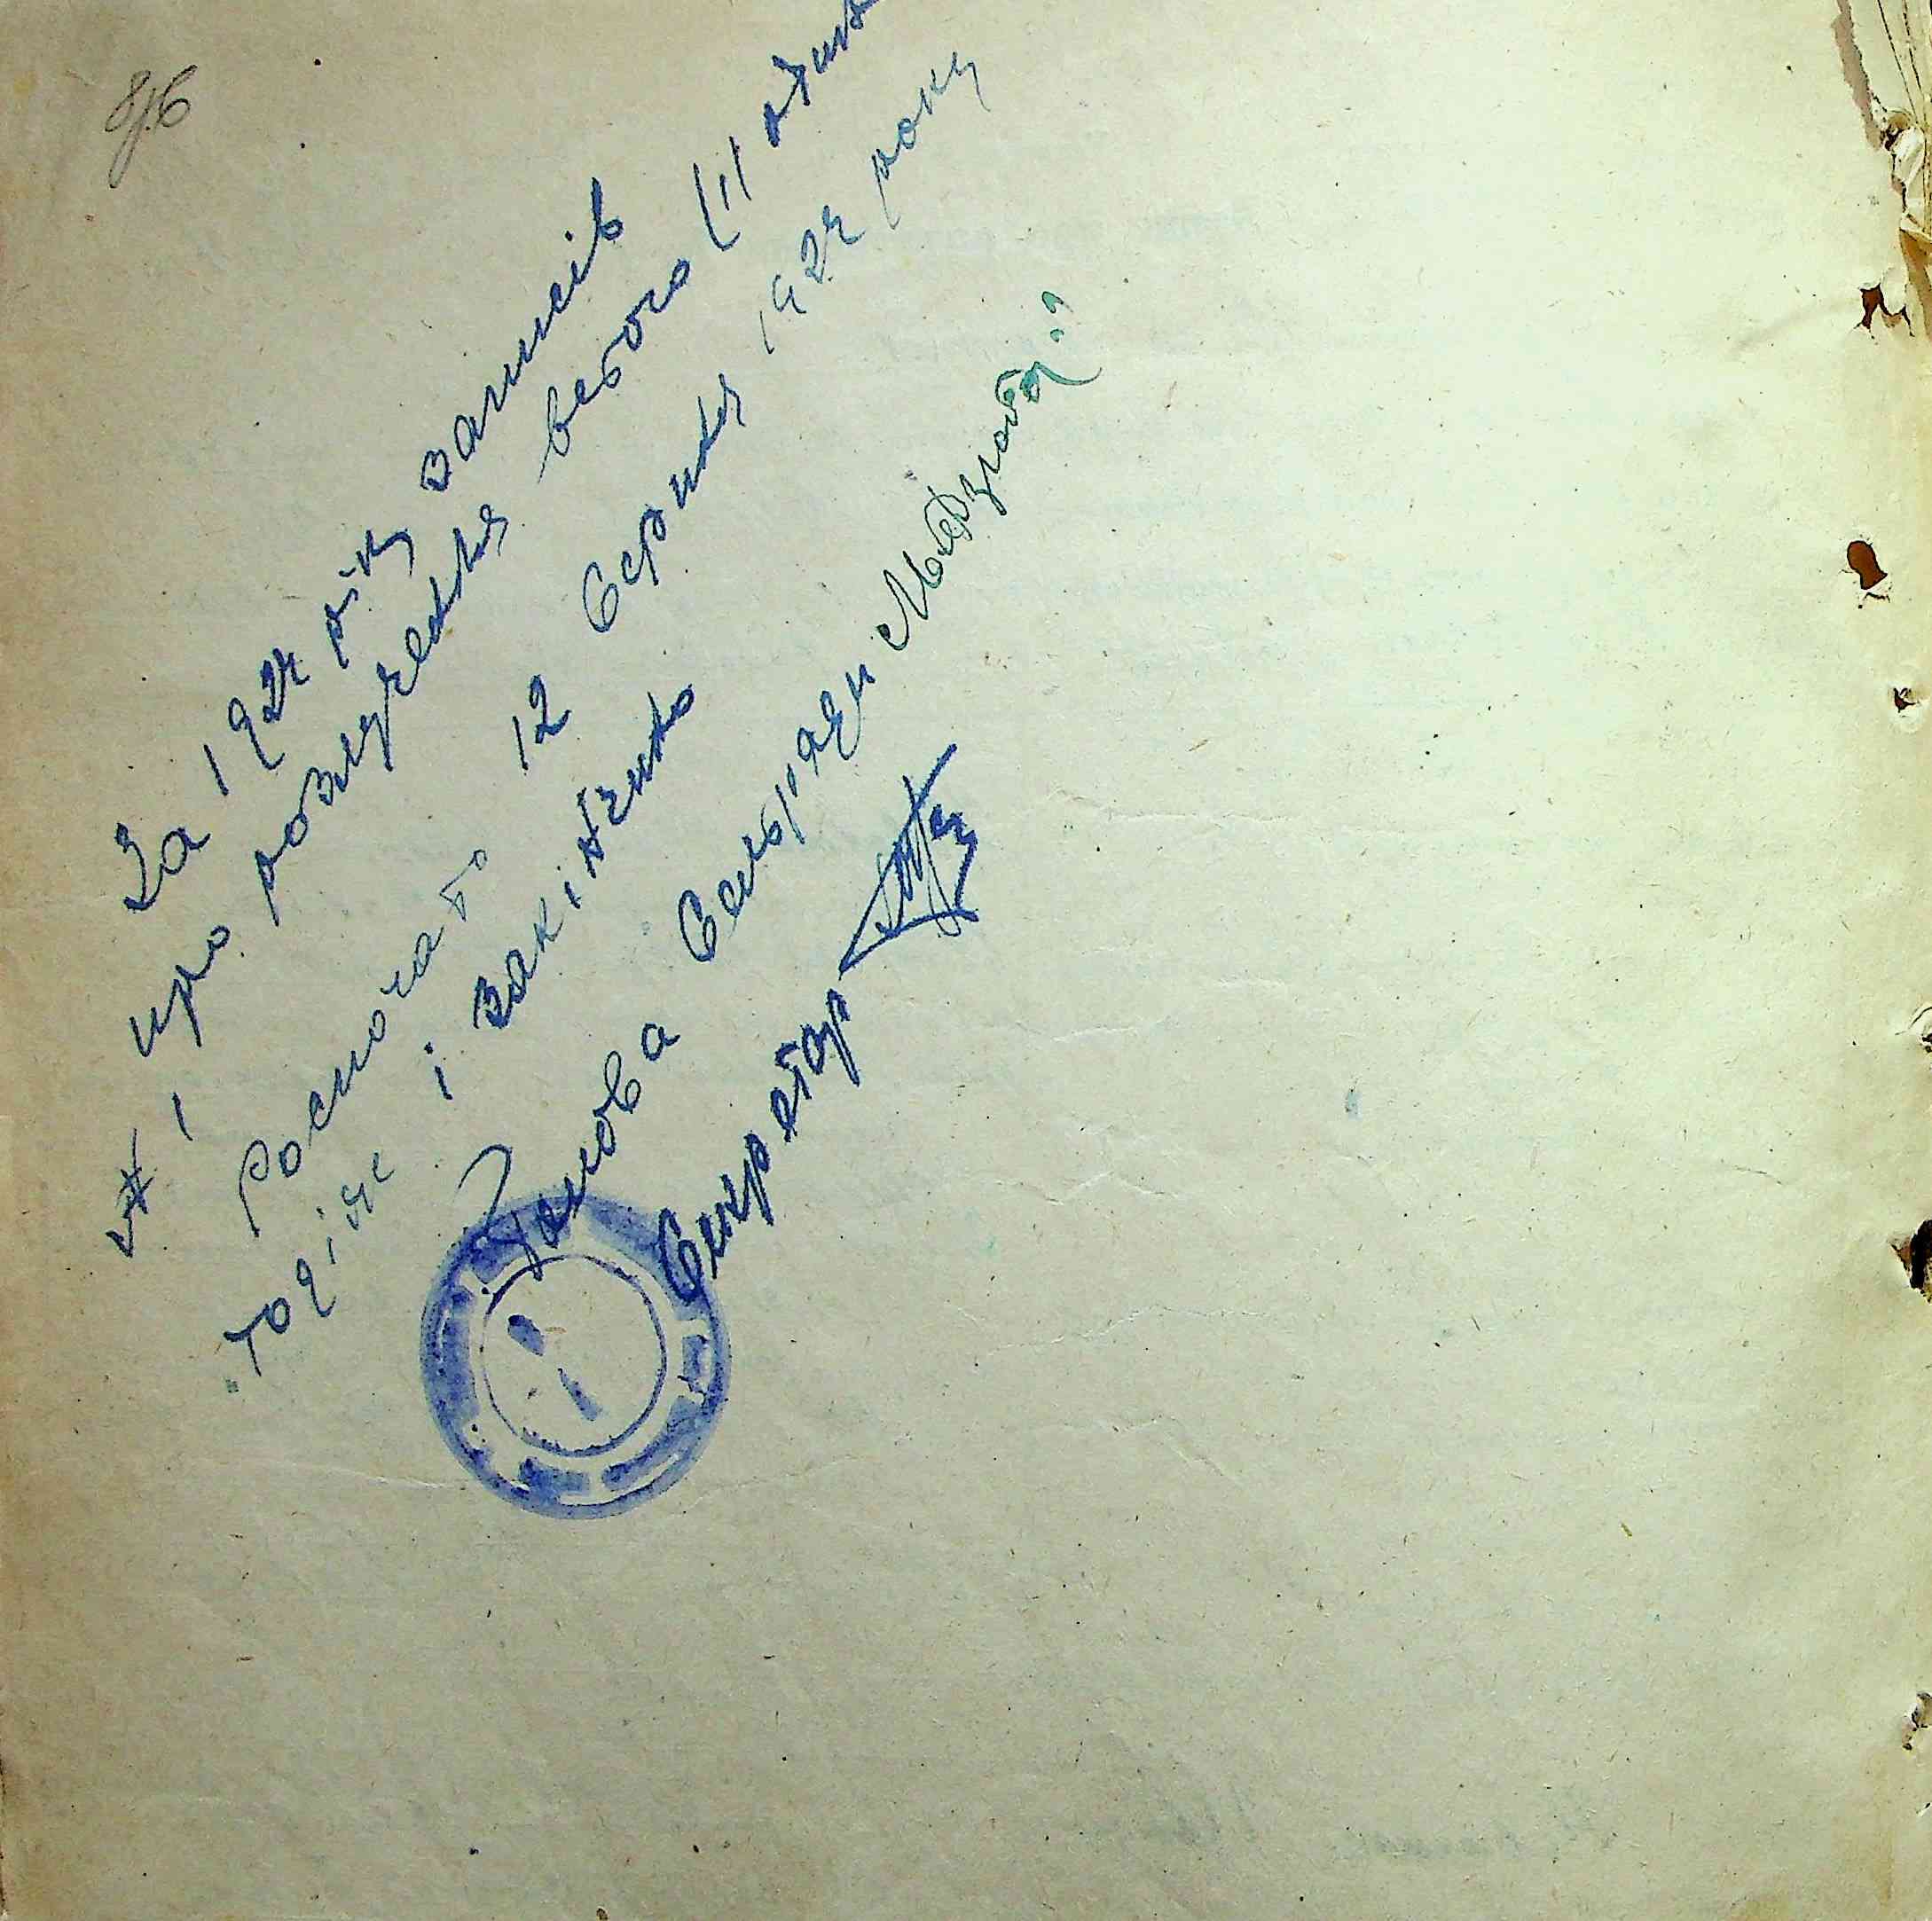 За 1924 ріку записів
про розлучення всього (1) один
№ 1
Роспочато 12 Серпня 1924 року
тогіж і закінчено
Голова Сельради
Сикретар